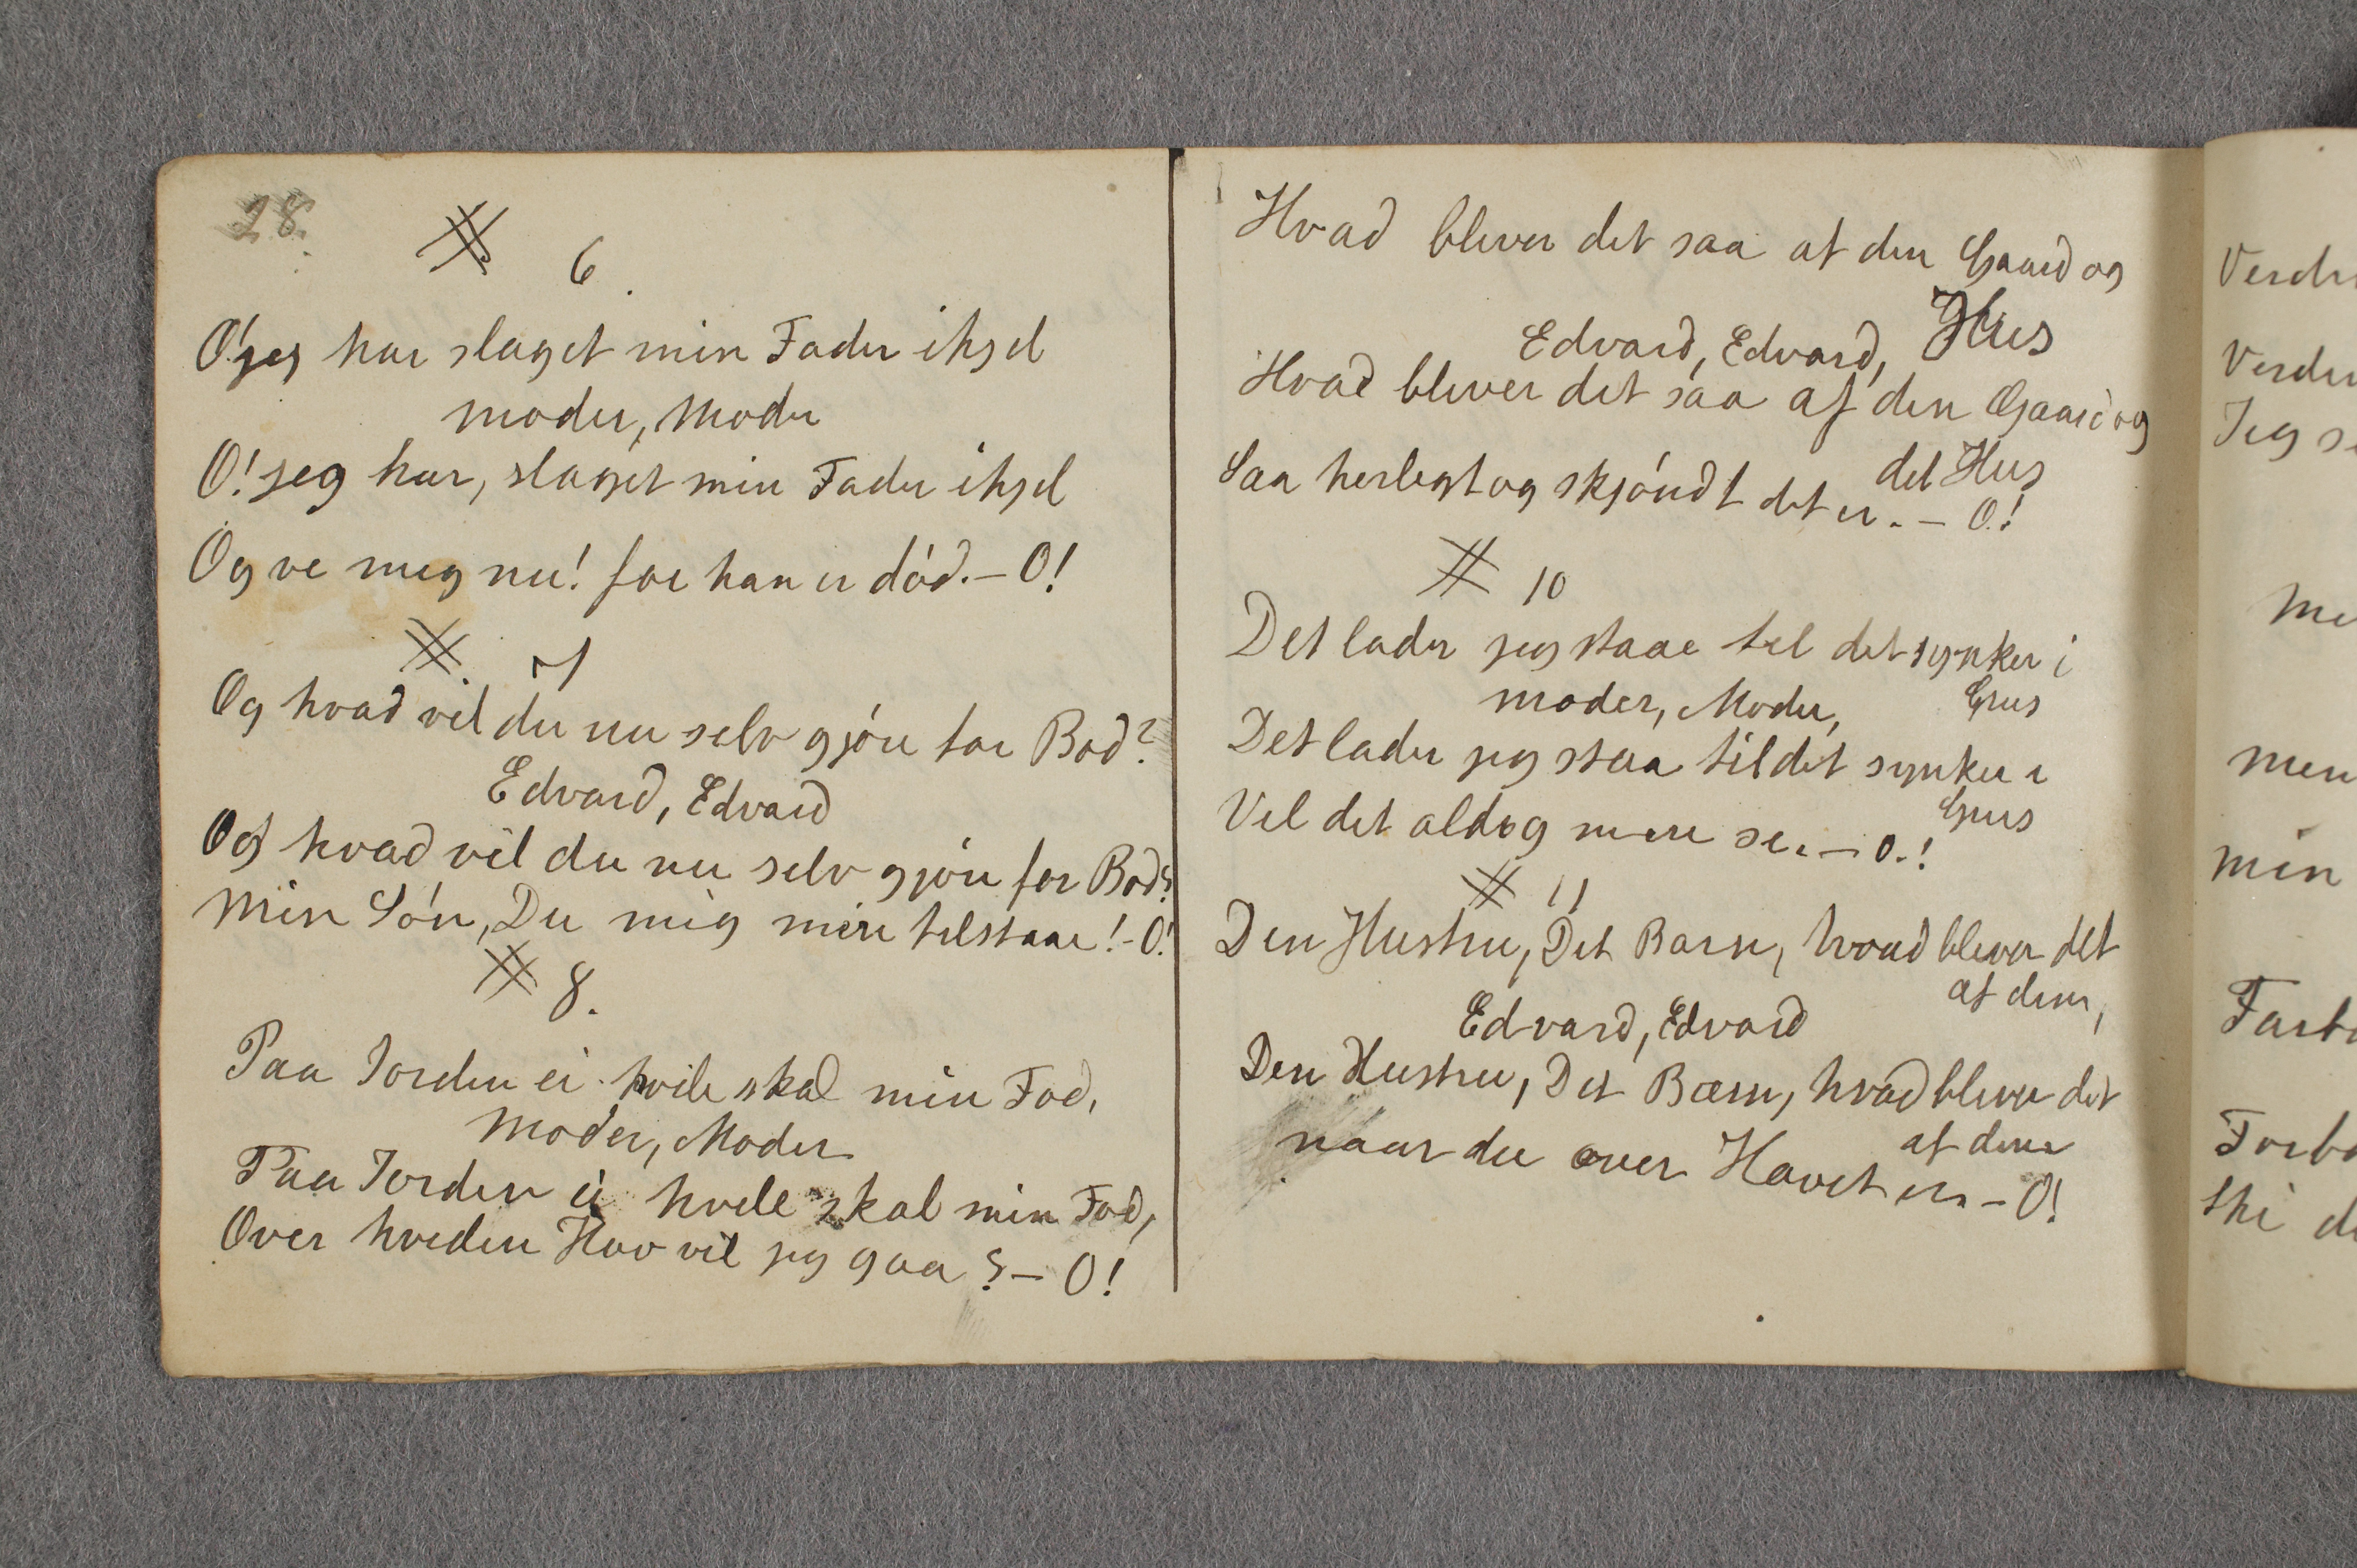 28.
# 6.
O! jeg har slaget min Fader ihjel
moder, Moder
O! jeg har, slaget min Fader ihjel
Og ve mig nu! for han er död. – O!
# 7
Og hvad vil du nu selv gjöre for Bod?
Edvard, Edvard
Og hvad vil du nu selv gjöre for Bod?
Min Sön, Du mig mere tilstaae! – O!
# 8.
Paa Jorden ei hvile skal min Fod,
Moder, Moder
Paa Jorden ei hvile skal min Fod,
Over hviden Hav vil jeg gaa? – O!
Hvad bliver det saa af den Gaard og
Hus
Edvard, Edvard,
Hvad bliver det saa af den Gaard og
det Hus
Saa herligt og skjöndt det er. – O.!
# 10
Det lader jeg staae til det synker i
Grus
moder, Moder,
Det lader jeg staa til det synker i
Grus
Vil det aldrig mere se. – O.!
# 11
Din Hustru, Dit Barn, hvad bliver det
af dem,
Edvard, Edvard
Din Hustru, Dit Barn, hvad bliver det
af dem
naar du over Havet er. – O!
Jeg
men
min
thi